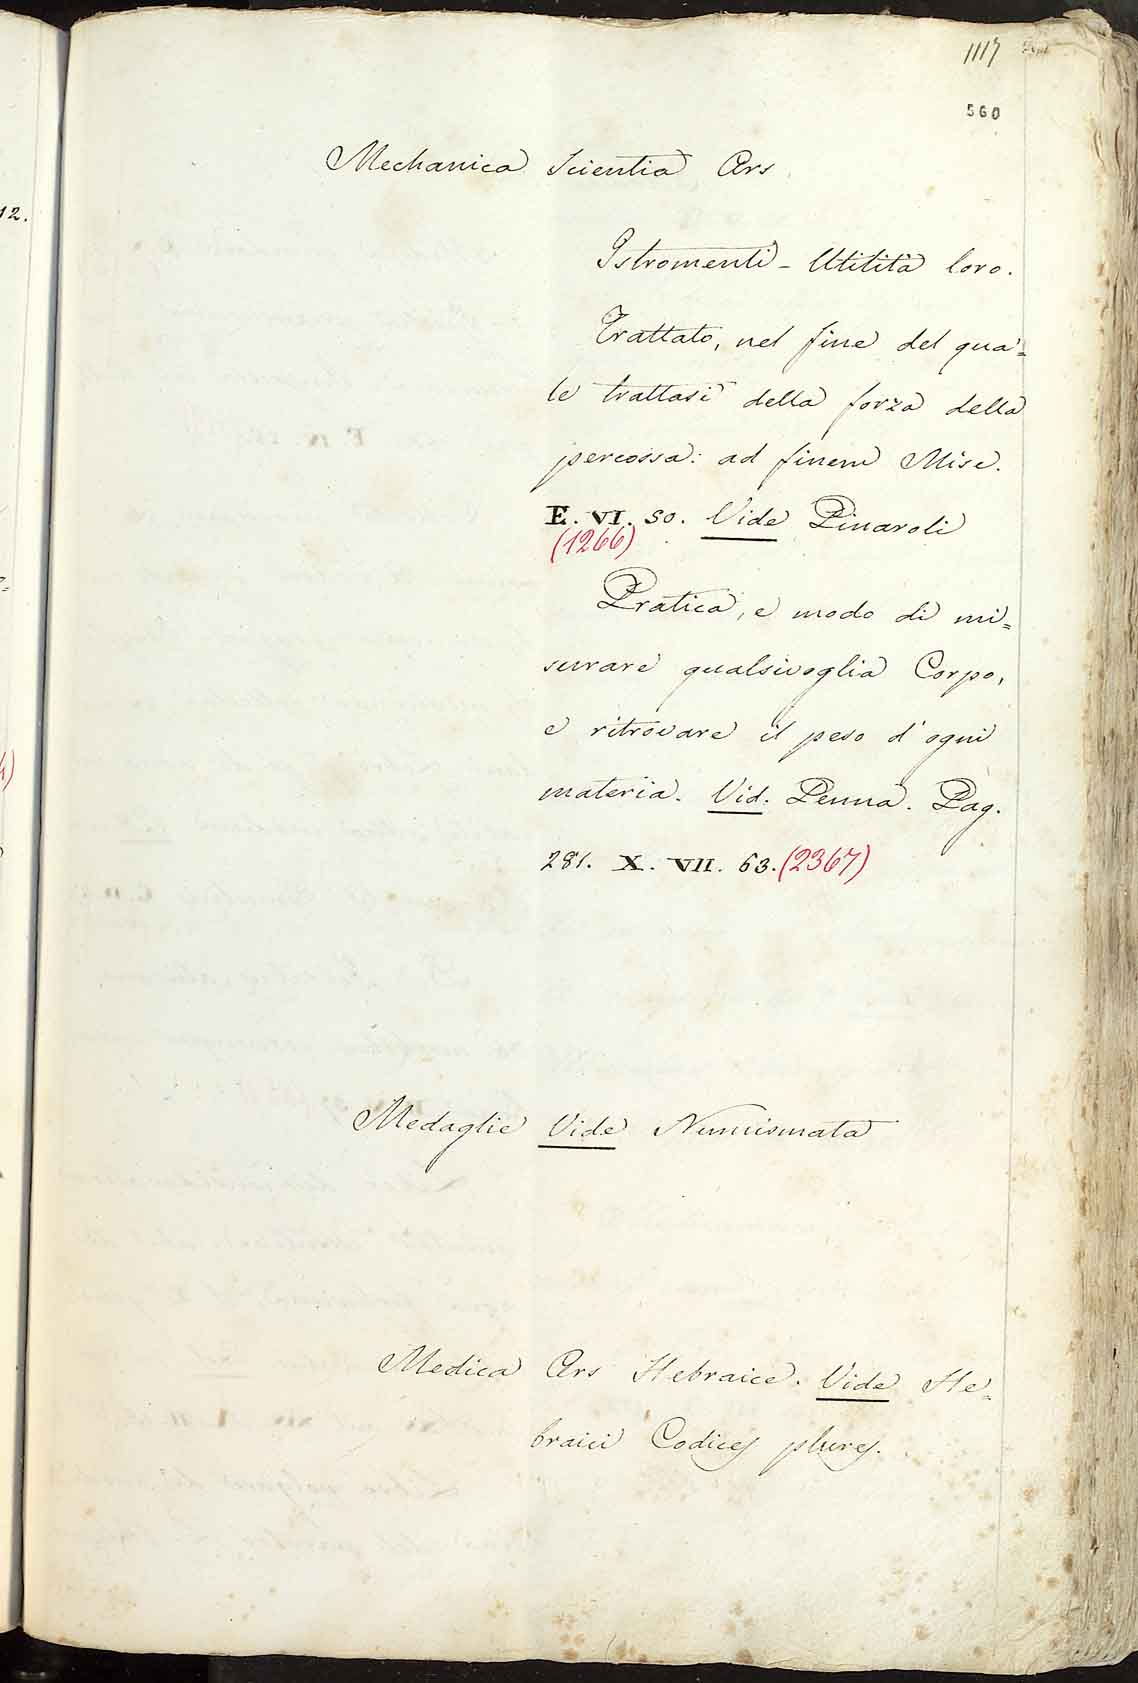 1117
560
12.
Mechanica Scientia Ars
Istromenti - Utilità loro.
Trattato, nel fine del qua=
le trattasi della forza della
percossa: ad finem Misc.
E. VI. 50. Vide Pinaroli
(1266)
Pratica, e modo di mi=
surare qualsivoglia Corpo,
e ritrovare il peso d'ogni
materia. Vid. Penna. Pag.
281. X. VII. 63. (2367)
Medaglie Vide Numismata
Medica Ars Hebraice. Vide He=
braici Codices plures.